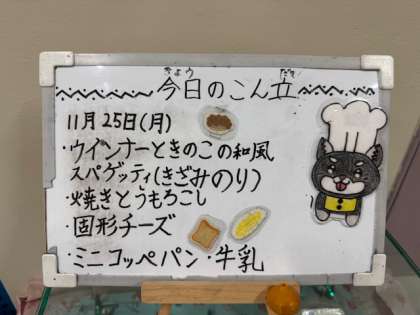 今日のこん立
きょう だて
11月25日(月)
・ウインナーときのこの和風
スパゲッティ(きざみのり)
・焼きとうもろこし
・固形チーズ
・ミニコッペパン・牛乳